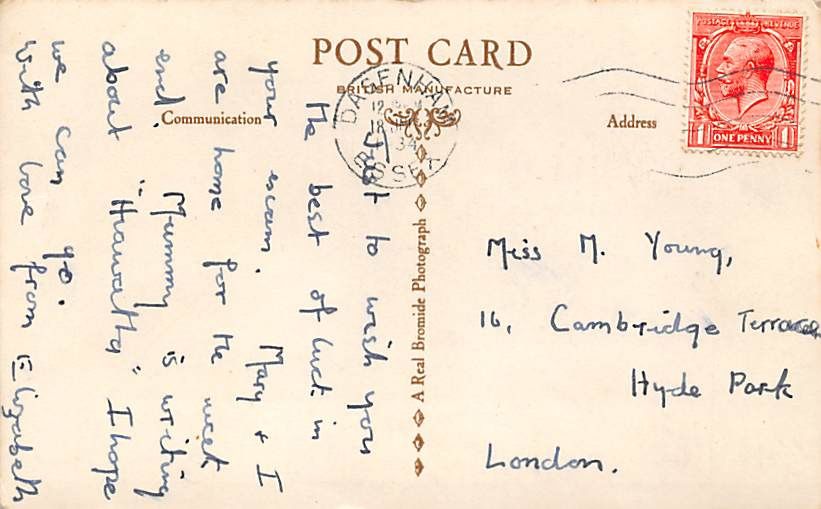 POST CARD
BRITISH MANUFACTURE
Communication
Address
A Real Bromide Photograph
POSTAGE REVENUE
1 1
ONE PENNY
DAGENHAM
12
18
34
ESSEX
Just to wish you
the best of luck in
your exam. Mary & I
are home for the week
end. Mummy is writing
about "Hiawatha" I hope
we can go.
With love from Elizabeth
Miss M. Young,
16, Cambridge Terrace
Hyde Park
London.